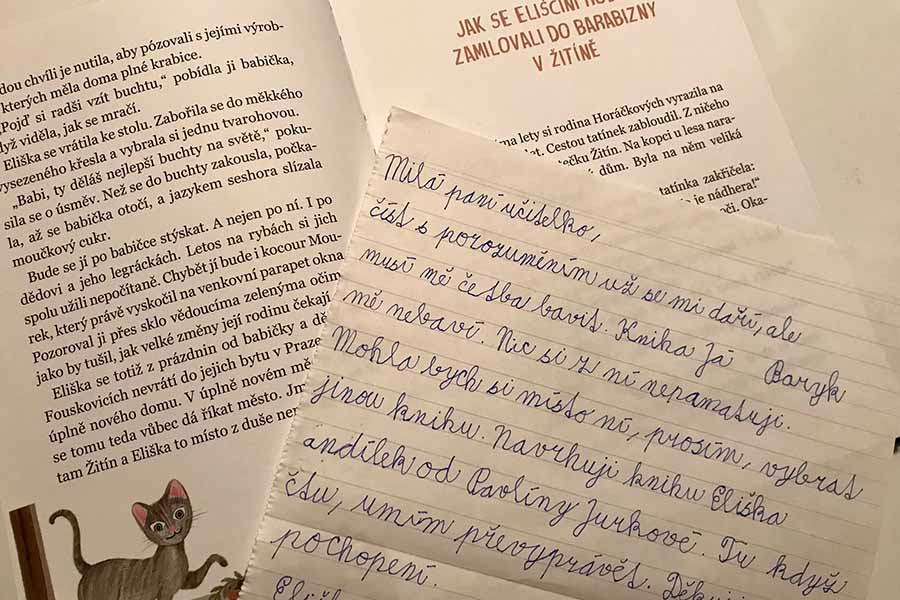 dou chvíli je nutila, aby pózovali s jejími výrob-
kterých měla doma plné krabice.
„Pojď si radši vzít buchtu,“ pobídla ji babička,
když viděla, jak se mračí.
Eliška se vrátila ke stolu. Zabořila se do měkkého
vysezeného křesla a vybrala si jednu tvarohovou.
„Babi, ty děláš nejlepší buchty na světě,“ poku-
sila se o úsměv. Než se do buchty zakousla, počka-
la, až se babička otočí, a jazykem seshora slízala
moučkový cukr.
Bude se jí po babičce stýskat. A nejen po ní. I po
dědovi a jeho legráckách. Letos na rybách si jich
spolu užili nepočítaně. Chybět jí bude i kocour Mou-
rek, který právě vyskočil na venkovní parapet okna
Pozoroval ji přes sklo vědoucíma zelenýma očim
jako by tušil, jak velké změny její rodinu čekají
Eliška se totiž z prázdnin od babičky a dě
Fouskovicích nevrátí do jejich bytu v Praze
úplně nového domu. V úplně novém mě
se tomu teda vůbec dá říkat město. Jm
tam Žitín a Eliška to místo z duše ner
JAK SE ELIŠČINI
ZAMILOVALI DO BARABIZNY
V ŽITÍNĚ
ma lety si rodina Horáčkových vyrazila na
Cestou tatínek zabloudil. Z ničeho
Žitín. Na kopci u lesa nara-
dům. Byla na něm veliká
tatínka zakřičela:
je nádhera!“
Oka-
Milá paní učitelko,
číst s porozuměním už se mi daří, ale
musí mě četba bavit. Kniha Já Baryk
mě nebaví. Nic si z ní nepamatuji.
Mohla bych si místo ní, prosím, vybrat
jinou knihu. Navrhuji knihu Eliška
andílek od Pavlíny Jurkové. Tu když
čtu, umím převyprávět. Děkuji
pochopení.